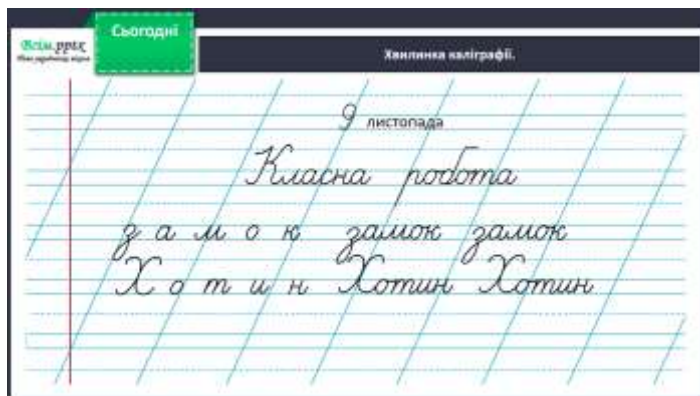 Сьогодні
Всім.pptx
Хвилинка каліграфії.
9 листопада
Класна робота
з а м о к замок замок
Х о т и н Хотин Хотин